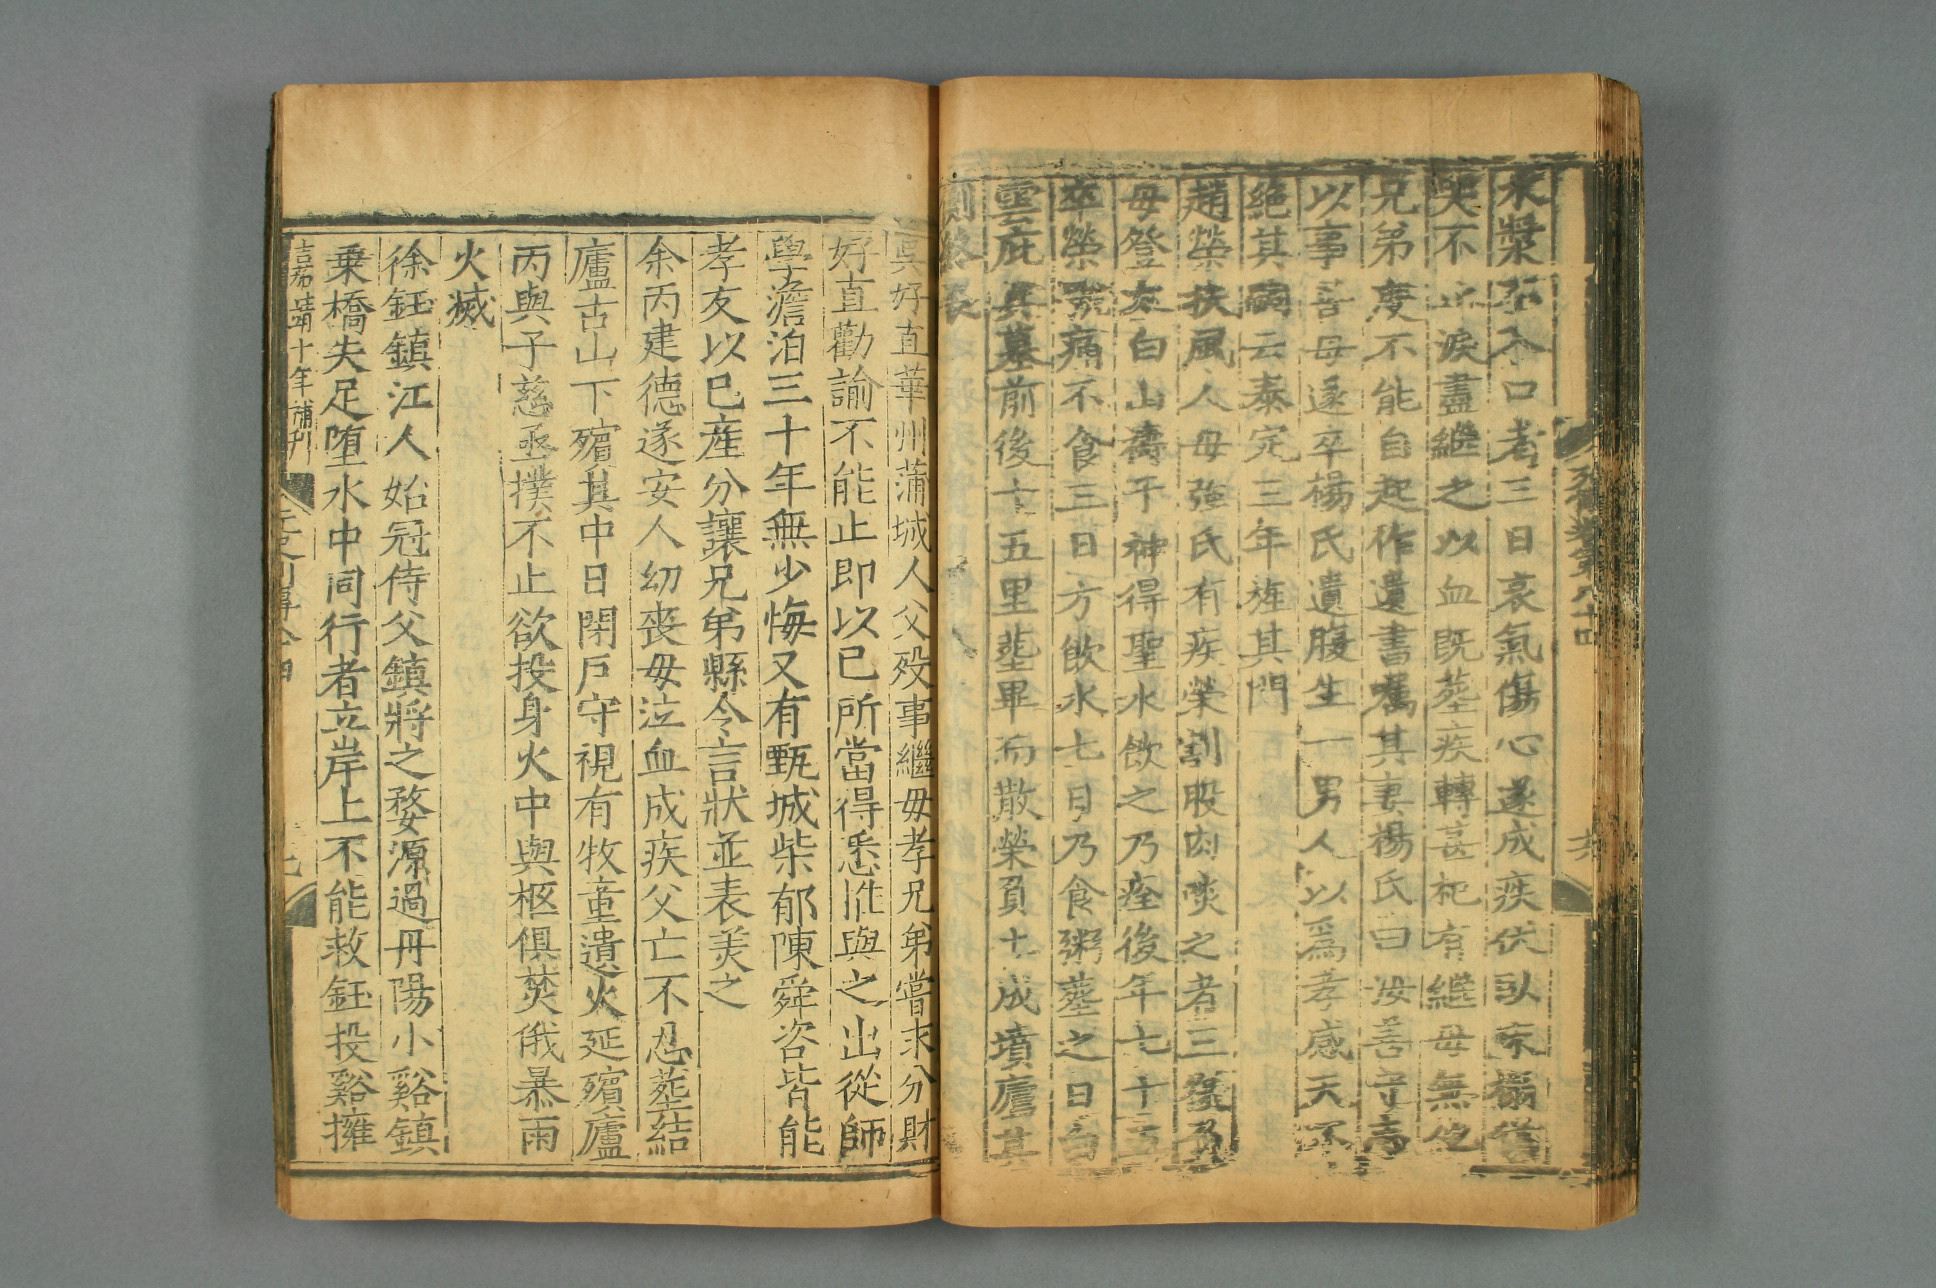 水漿不入口者三日哀氣傷心遂成疾伏臥床榻哭
哭不止淚盡繼之以血既葬疾轉甚杞有繼母無他
兄弟度不能自起作遺書囑其妻楊氏曰汝善守志
以事吾母遂卒楊氏遺腹生一男人以為孝感天不
絕其嗣云泰定三年旌其門
趙榮扶風人母強氏有疾榮割股肉啖之者三復負
母登太白山禱于神得聖水飲之乃痊後年七十五
卒榮號痛不食三日方飲水七日乃食粥葬之日白
雲庇其墓前後十五里葬畢而散榮負土成墳廬其
側終喪
列傳卷第八十四
六
吳好直華州蒲城人父歿事繼母孝兄弟嘗求分財
好直勸諭不能止即以己所當得悉推與之出從師
學澹泊三十年無少悔又有甄城柴郁陳舜咨皆能
孝友以己產分讓兄弟縣令言狀並表美之
余丙建德遂安人幼喪母泣血成疾父亡不忍葬結
廬古山下殯其中日閉戶守視有牧童遺火延殯廬
丙與子慈亟撲不止欲投身火中與柩俱焚俄暴雨
火滅
徐鈺鎮江人始冠侍父鎮將之婺源過丹陽小谿鎮
乗橋失足墮水中同行者立岸上不能救鈺投谿擁
嘉靖十年補刊
元史列傳八十四
七